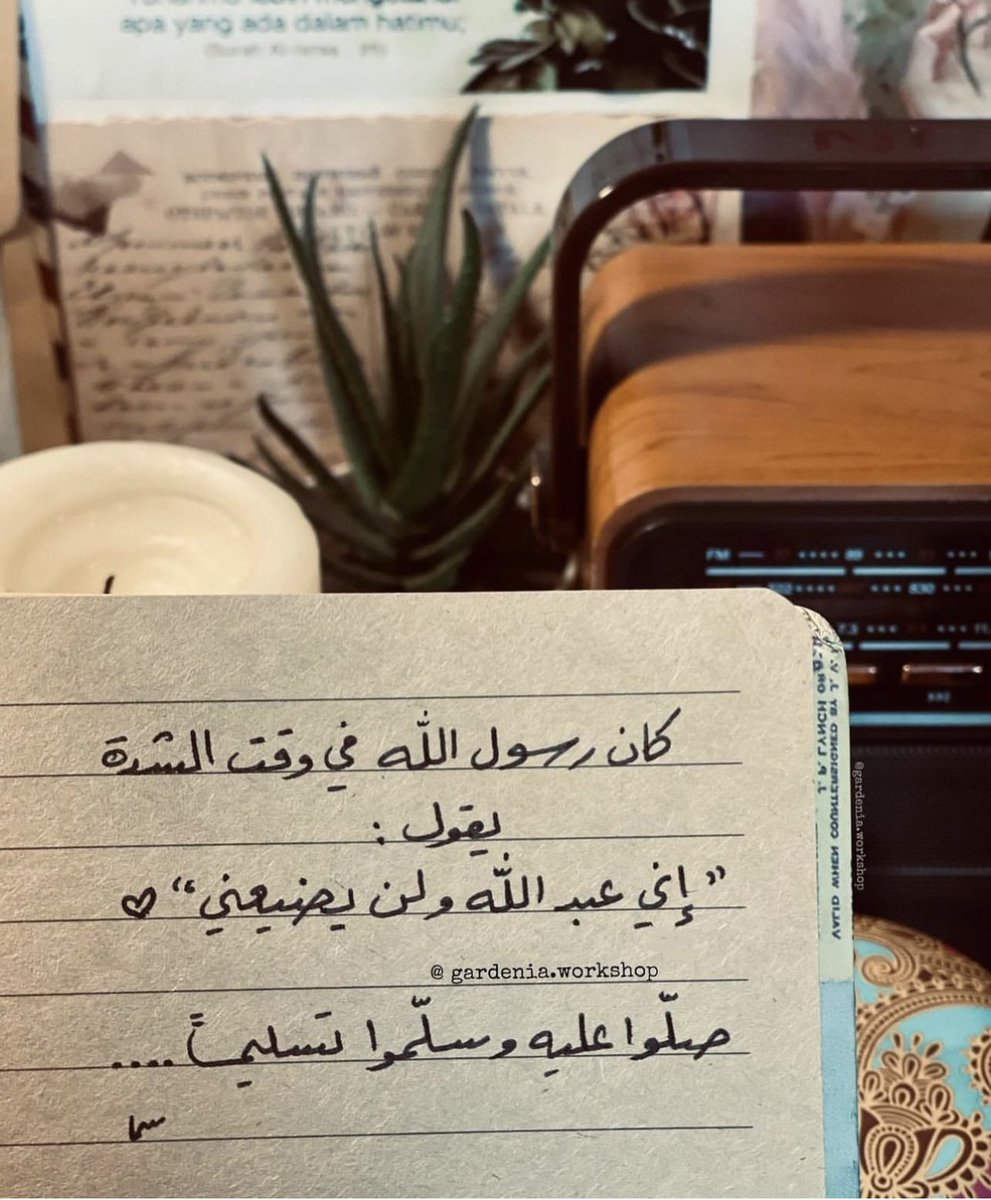 apa yang ada dalam hatimu;
FM
كان رسول الله في وقت الشدة
يقول :
”إني عبد الله ولن يضيعني“ ♡
@ gardenia.workshop
صلّوا عليه وسلّموا تسليماً ....
@gardenia.workshop
VALID WHEN COUNTERSIGNED BY